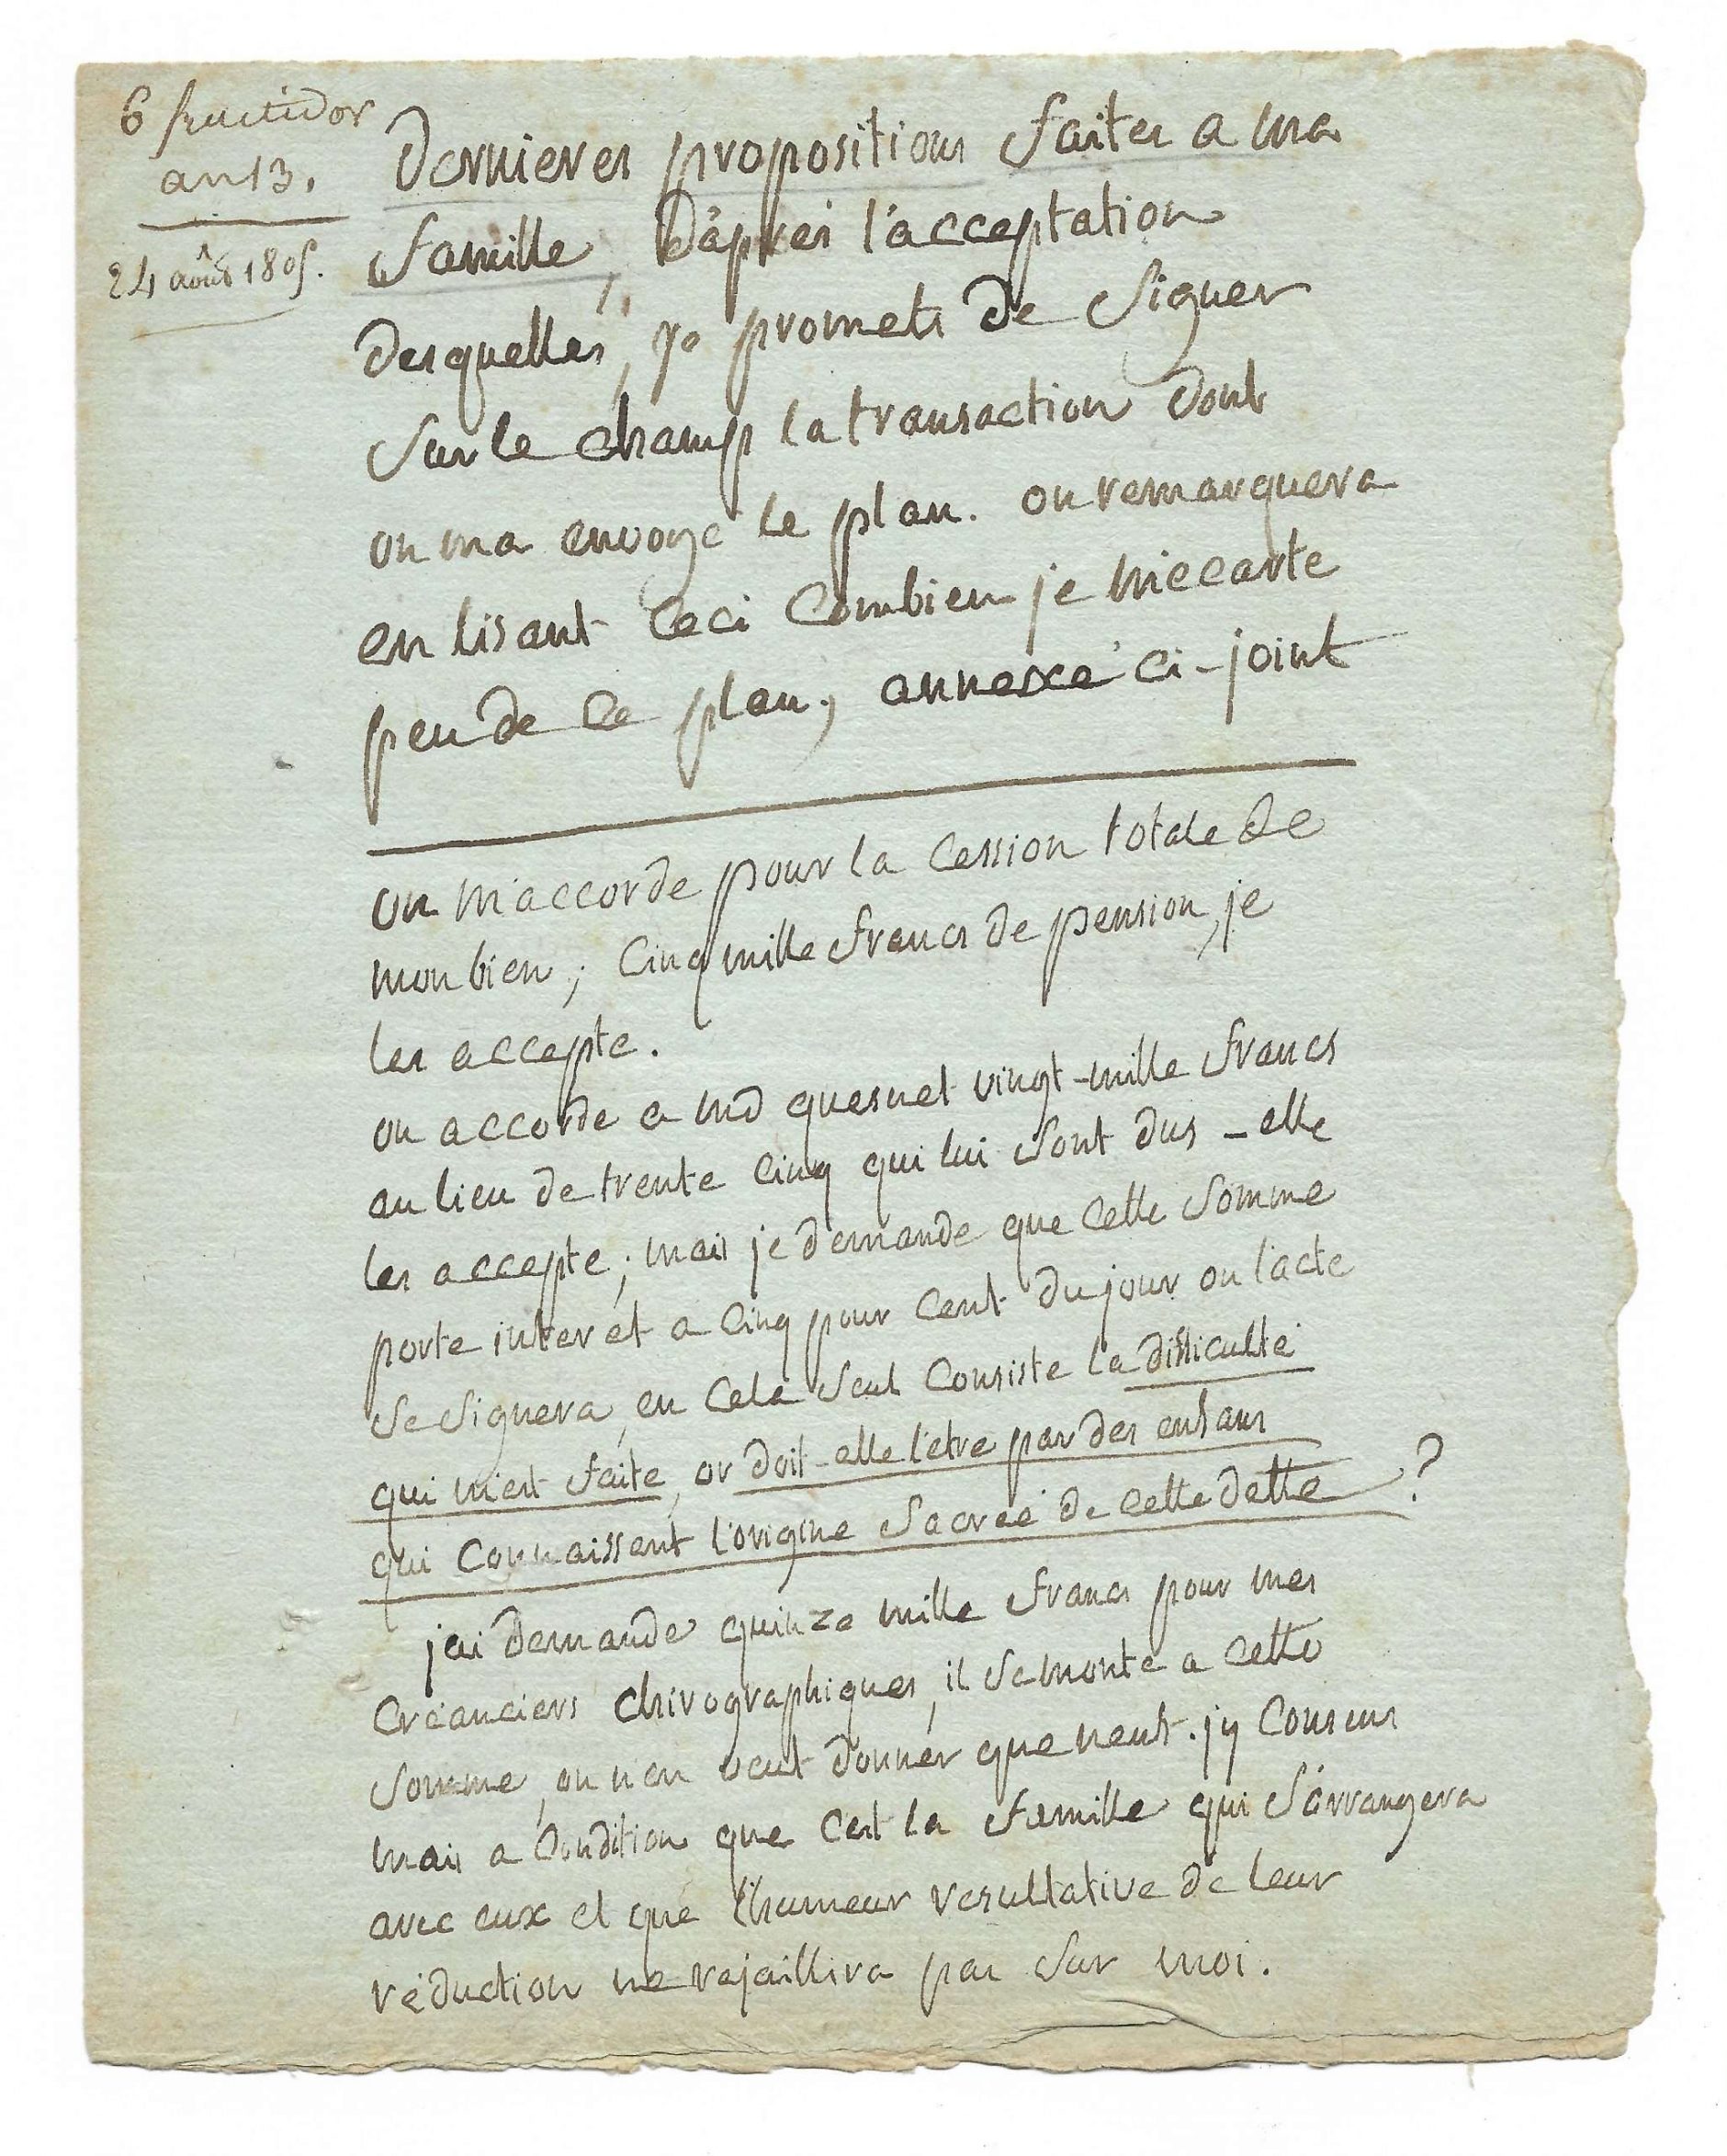 6 fructidor
an 13.
24 août 1805.
Dernieres propositions faites a ma
famille, D'àprès l'acceptation
desquelles, je promets de signer
sur le champ la transaction dont
on ma envoyé le plan. on remarquera
en lisant ceci combien je m'ecarte
peu de ce plan, annexé ci-joint
on m'accorde pour la cession totale de
mon bien; cinq mille francs de pension, je
les accepte.
on accorde a md quesnet vingt-mille francs
au lieu de trente cinq qui lui sont dus - elle
les accepte; mais je demande que cette somme
porte interet a cinq pour cent du jour ou l'acte
se signera, en cela seul consiste la difficulté
qui m'est faite, or doit-elle l'etre par des enfans
qui connaissent l'origine sacrée de cette dette ?
j'ai demandé quinze mille francs pour mes
créanciers chirographiques, il se monte a cette
somme, on n'en veut donner que neuf. j'y consens
mais a condition que c'est la famille qui s'arrangera
avec eux et que l'humeur resultative de leur
réduction ne rejaillira pas sur moi.